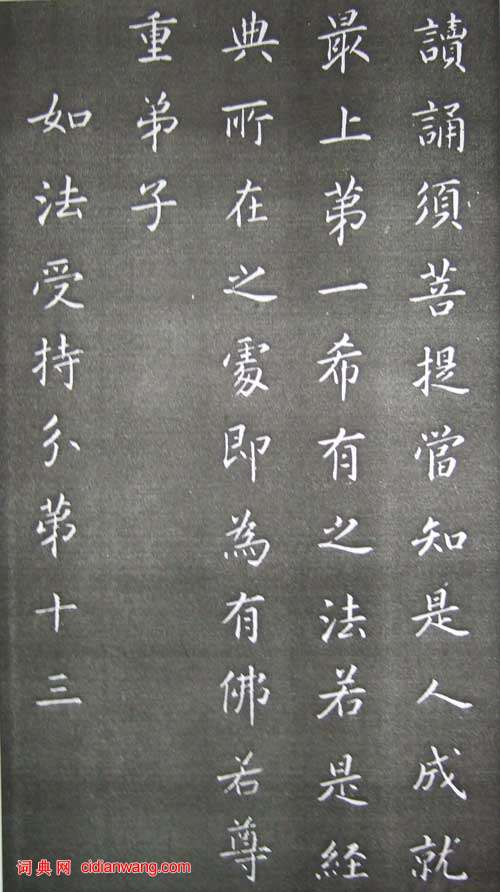 讀誦須菩提當知是人成就
最上第一希有之法若是經
典所在之處即為有佛若尊
重弟子
如法受持分第十三
词典网 cidianwang.com